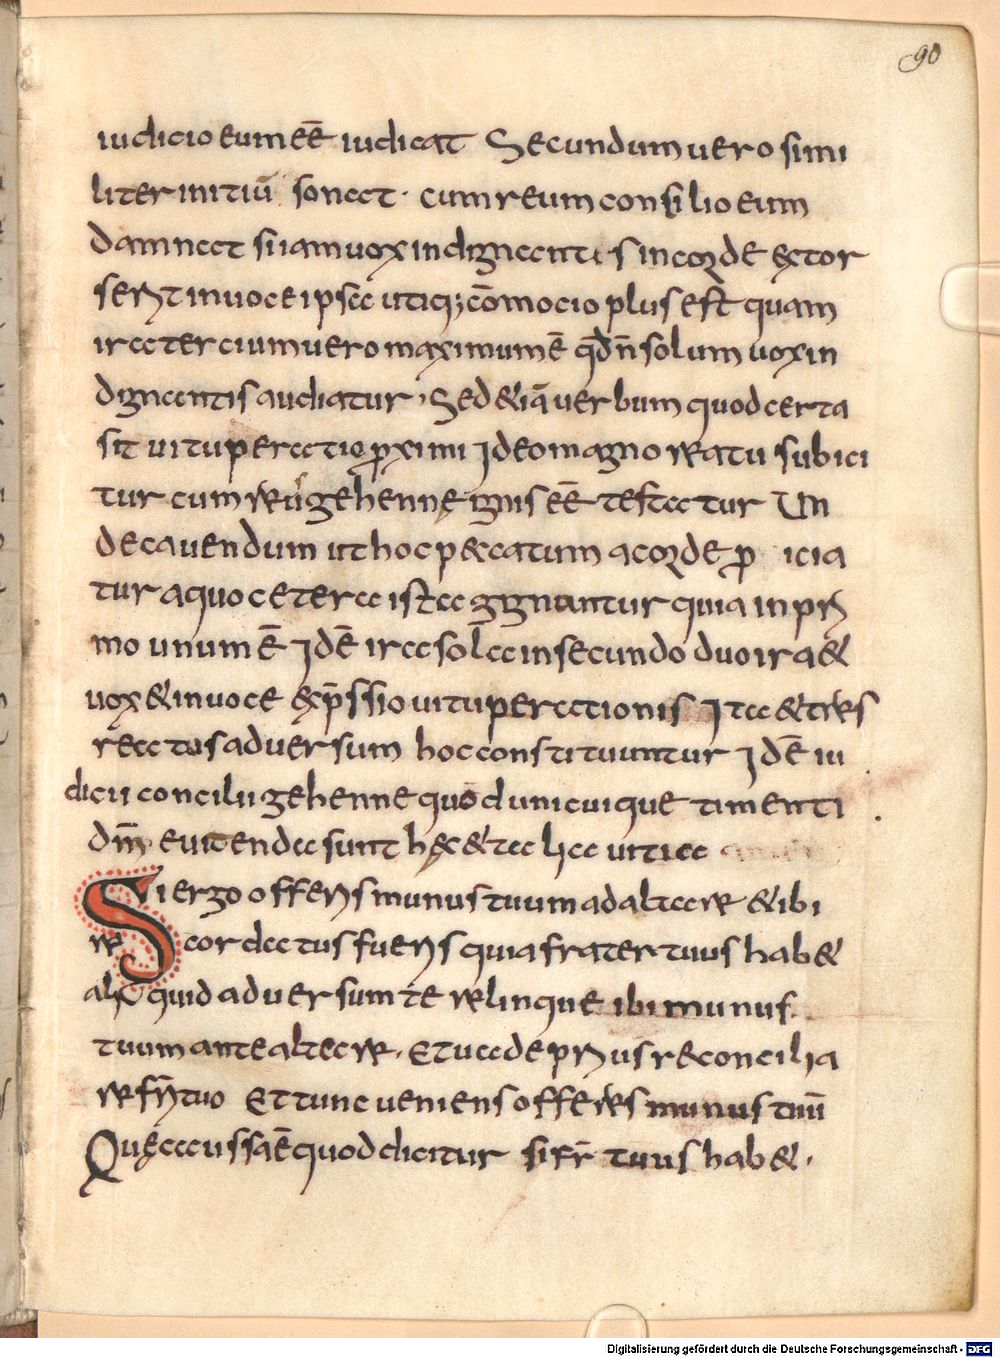 90
iudicio eum eē iudicat Secundum uero simi
liter initiū sonat · cum reum consilio eum
damnat si iam uox indignantis in corde extor
serit in uoce ipsa utiq; cōmocio plus est quam
ira tercium uero maximum ē qd n̄ solum uox in
dignantis audiatur · Sed & iā uerbum quod certa
sit uituperatio proximi Ideo magno reatu subici
tur cum reus gehenne ignis eē testatur Un
de cauendum ut hoc peccatum a corde p icia
tur a quo cetera ista gignantur quia in pri
mo unum ē Id ē ira sola in secundo duo ira &
uox & in uoce exp̄ssio uituperationis Ita & tres
reatus aduersum hoc constituuntur Id ē iu
dicii concilii gehenne quod unicuique timenti
dm̄ euitenda sunt hęc & talia uitia
Si ergo offeris munus tuum ad altare & ibi
re cordatus fueris quia frater tuus hab&
aliquid aduersum te relinque ibi munus
tuum ante altare · Et uade prius reconcilia
re fri tuo Et tunc ueniens offeres munus tuū
Quę causa ē quod dicitur si fr̄ tuus hab& ·
Digitalisierung gefördert durch die Deutsche Forschungsgemeinschaft - DFG